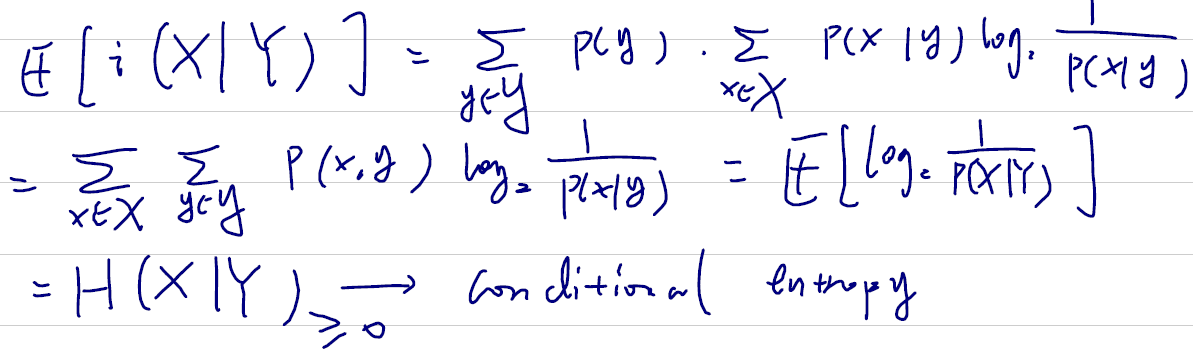 E[i(X|Y)] = Σ_{y∈Y} P(y) · Σ_{x∈X} P(x|y) log₂ 1/P(x|y)
= Σ_{x∈X} Σ_{y∈Y} P(x,y) log₂ 1/P(x|y) = E[log₂ 1/P(X|Y)]
= H(X|Y) ≥ 0 → conditional entropy